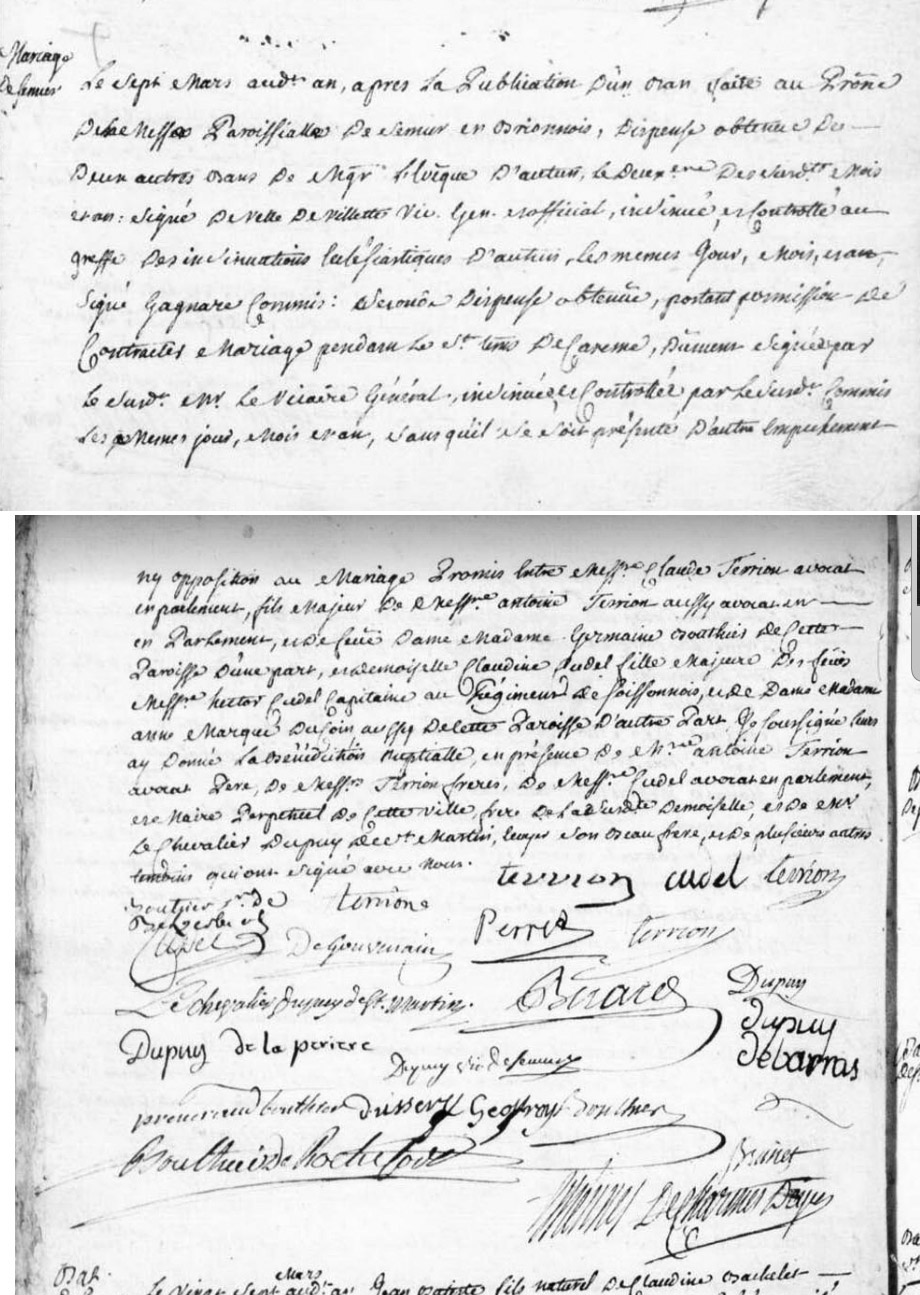 Mariage
De Semur
Le Sept Mars audt an, apres La Publication D'un Ban faite au Prône
De la Messe Paroissialle De Semur en Brionnois, Dispense obtenue De
Deux autres Bans De Mgr L'Evêque D'autun, le Deuxeme Des susdts Mois
et an: Signé De Velle De Villette Vic. Gen. et official, insinué, et Controllé au
greffe Des insinuations Ecclésiastiques D'autun, Les memes Jour, Mois, et an,
Signé Gagnare Commis: Seconde Dispense obtenuë, portant permission De
Contracter Mariage pendant Le St tems De Careme, Dument Signée par
Le Susdt Mr. Le Vicaire Général, insinuée et Controllée par Le Susdt Commis
Les Memes jour, Mois et an, Sans qu'il Se Soit présenté D'autre Empechement
ny opposition au Mariage Promis Entre Messre Claude Terrion avocat
en parlement, fils Majeur De Messre antoine Terrion aussy avocat en
en Parlement, et De feüe Dame Madame Germaine Bouthier De Cette
Paroisse D'une part, et Demoiselle Claudine Cudel fille Majeure Des feus
Messre hector Cudel Capitaine au Régiment De Soissonnois, et De Dame Madame
anne Marque Dusoin aussy De Cette Paroisse D'autre Part, Je Soussigné Leurs
ay Donné La Bénédiction Nuptialle, en présence De Mre antoine Terrion
avocat Pere, De Messrs Terrion freres, De Messre Cudel avocat en parlement,
et Maire Perpetuel De Cette ville, frere De La Susdte Demoiselle, et De Mr
Le Chevalier Dupuy De St Martin, Ecuyer Son Beau frere, et De plusieurs autres
temoins qui ont Signé avec Nous.
terrion cudel terrion
Bouthier De
terrion
Cudel De Gouvenain Perret terrion
Le chevalier Dupuy de St. Martin Berard Dupuy
dupuy
Dupuy de la periere debarras
Dupuy De Semur
bouthier dusserts Geoffroy Bouthier
Bouthier de Rochefort
Brunet
Bat
Mars
Le Vingt Sept audt an Jean Batiste fils naturel De Claudine Bachelet